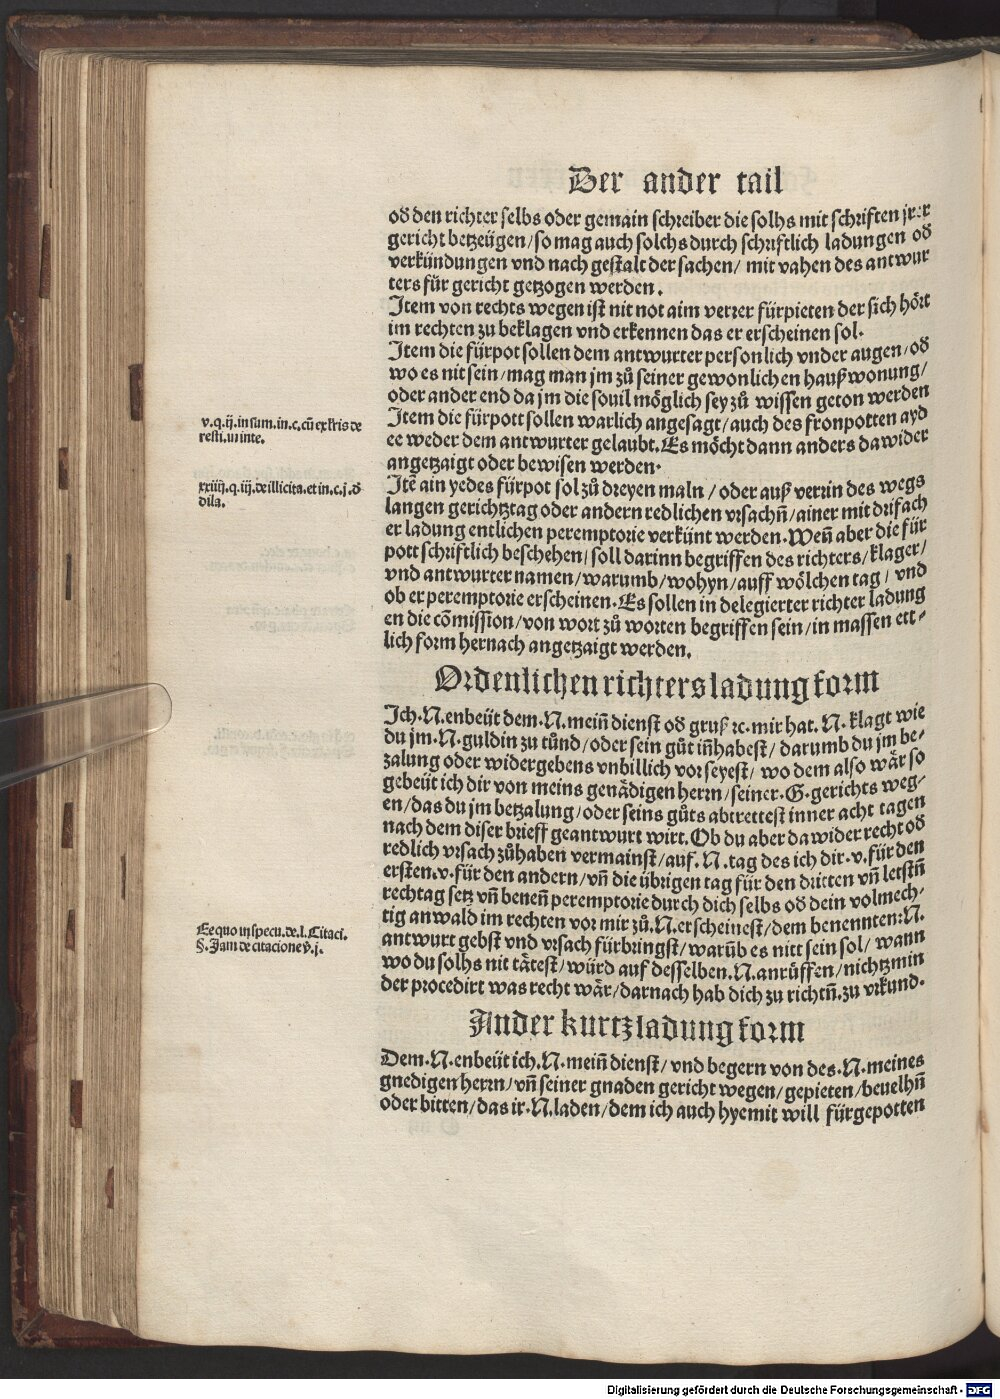 Der ander tail
od̕ den richter selbs oder gemain schreiber die solhs mit schriften jrer
gericht betzeügen/so mag auch solchs durch schriftlich ladungen od̕
verkündungen vnd nach gestalt der sachen/ mit vahen des antwur
ters für gericht getzogen werden.
Item von rechts wegen ist nit not aim verrer fürpieten der sich hört
im rechten zu beklagen vnd erkennen das er erscheinen sol.
Item die fürpot sollen dem antwurter personlich vnder augen/od̕
wo es nit sein/mag man jm zů seiner gewonlichen haußwonung/
oder ander end da jm die souil möglich sey zů wissen geton werden
Item die fürpott sollen warlich angesagt/auch des fronpotten ayd
ee weder dem antwurter gelaubt. Es möcht dann anders dawider
angetzaigt oder bewisen werden.
v.q.ij.in sum.in.c.cū ex lr̄is de
resti.in inte.
Itē ain yedes fürpot sol zů dreyen maln/oder auß verrin des wegs
langen gerichtztag oder andern redlichen vrsachn̄/ainer mit drifach
er ladung entlichen peremptorie verkünt werden. Wen̄ aber die für
pott schriftlich beschehen/soll darinn begriffen des richters/klager/
vnd antwurter namen/warumb/wohyn/auff wölchen tag/vnd
ob er peremptorie erscheinen. Es sollen in delegierter richter ladung
en die cōmission/von wort zů worten begriffen sein/in massen ett-
lich form hernach angetzaigt werden.
xxiiij.q.iij.de illicita.et in.c.j.d̕
dila.
Ordenlichen richters ladung form
Ich.N.enbeüt dem.N.mein̄ dienst od̕ gruß ꝛc.mir hat.N.klagt wie
du jm.N.guldin zu tůnd/oder sein gůt in̄habest/darumb du jm be-
zalung oder widergebens vnbillich vor seyest/wo dem also wär so
gebeüt ich dir von meins genädigen herrn/seiner.G.gerichts weg-
en/das du jm betzalung/oder seins gůts abtrettest inner acht tagen
nach dem diser brieff geantwurt wirt. Ob du aber dawider recht od̕
redlich vrsach zůhaben vermainst/auf.N.tag des ich dir.v.für den
ersten.v.für den andern/vn̄ die übrigen tag für den dritten vn̄ letstn̄
rechtag setz vn̄ benen̄ peremptorie durch dich selbs od̕ dein volmech-
tig anwald im rechten vor mir zů.N.erscheinest/dem benennten.N.
antwurt gebst vnd vrsach fürbringst/warūb es nitt sein sol/wann
wo du solhs nit tätest/würd auf desselben.N.anrüffen/nichtzmin
der procedirt was recht wär/darnach hab dich zu richtn̄.zu vrkund.
Ee quo in specu.de.l.Citaci.
§.Jam de citacione v̕.j.
Ander kurtz ladung form
Dem.N.enbeüt ich.N.mein̄ dienst/vnd begern von des.N.meines
gnedigen herrn/vn̄ seiner gnaden gericht wegen/gepieten/beuelhn̄
oder bitten/das ir.N.laden/dem ich auch hyemit will fürgepotten
Digitalisierung gefördert durch die Deutsche Forschungsgemeinschaft - DFG